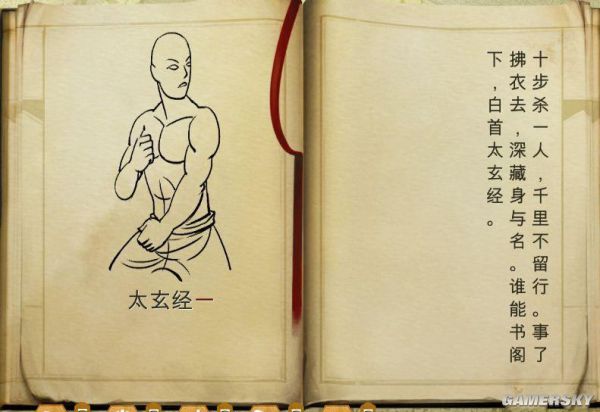 太玄经一
十步杀一人，千里不留行。事了
拂衣去，深藏身与名。谁能书阁
下，白首太玄经。
GAMERSKY